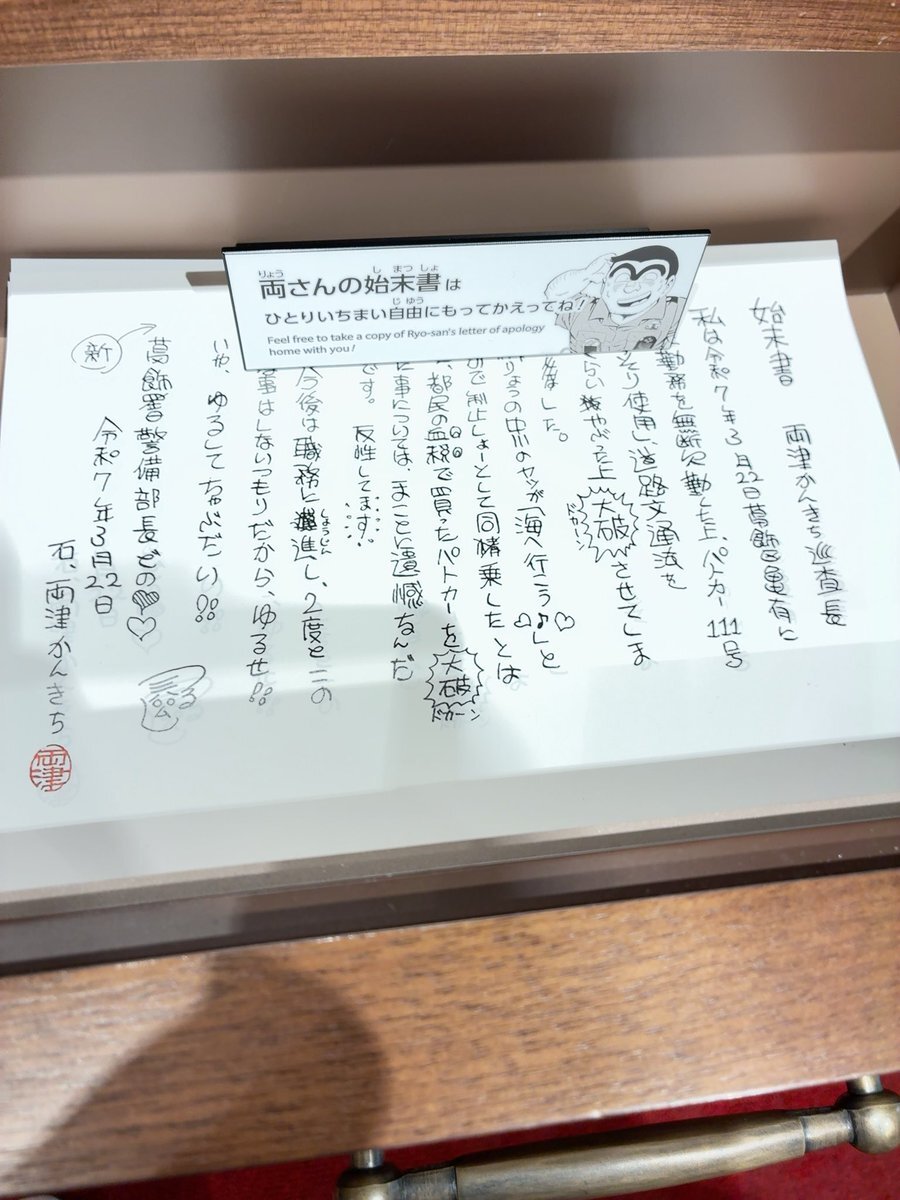 両さんの始末書は
ひとりいちまい自由にもってかえってね!
Feel free to take a copy of Ryo-san's letter of apology
home with you!
始末書 両津かんきち巡査長
私は令和7年3月22日葛飾区亀有に
勤務を無断欠勤した上、パトカー111号
使用し、道路交通法を
やぶった上大破させてしま
ドカーン
した。
りょうの中川のヤツが「海へ行こう♪」と
ので制止しょーとして同情乗したとは
、都民の血税で買ったパトカーを大破
ドカーン
た事については、まこと遺憾なんだ
です。反性してます。
今後は職務に進し、2度とこの
しょうじん
事はしないつもりだから、ゆるせ!!
いや、ゆるしてちゃぶだい!!
新
葛飾署警備部長どの♥♡
令和7年3月22日
石、両津かんきち
両津